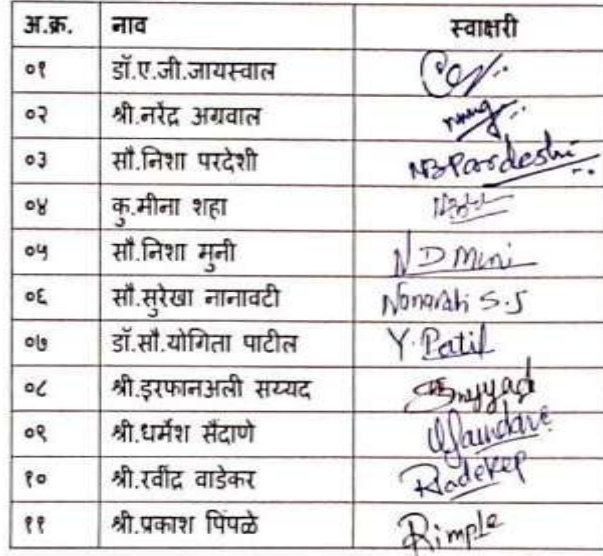 अ.क्र. नाव स्वाक्षरी
०१ डॉ.ए.जी.जायस्वाल
०२ श्री.नरेंद्र अग्रवाल
०३ सौ.निशा परदेशी NBPardeshi
०४ कु.मीना शहा
०५ सौ.निशा मुनी N D Muni
०६ सौ.सुरेखा नानावटी Nanavati S.J
०७ डॉ.सौ.योगिता पाटील Y. Patil
०८ श्री.इरफानअली सय्यद
०९ श्री.धर्मेश सैंदाणे
१० श्री.रवींद्र वाडेकर
११ श्री.प्रकाश पिंपळे Pimple